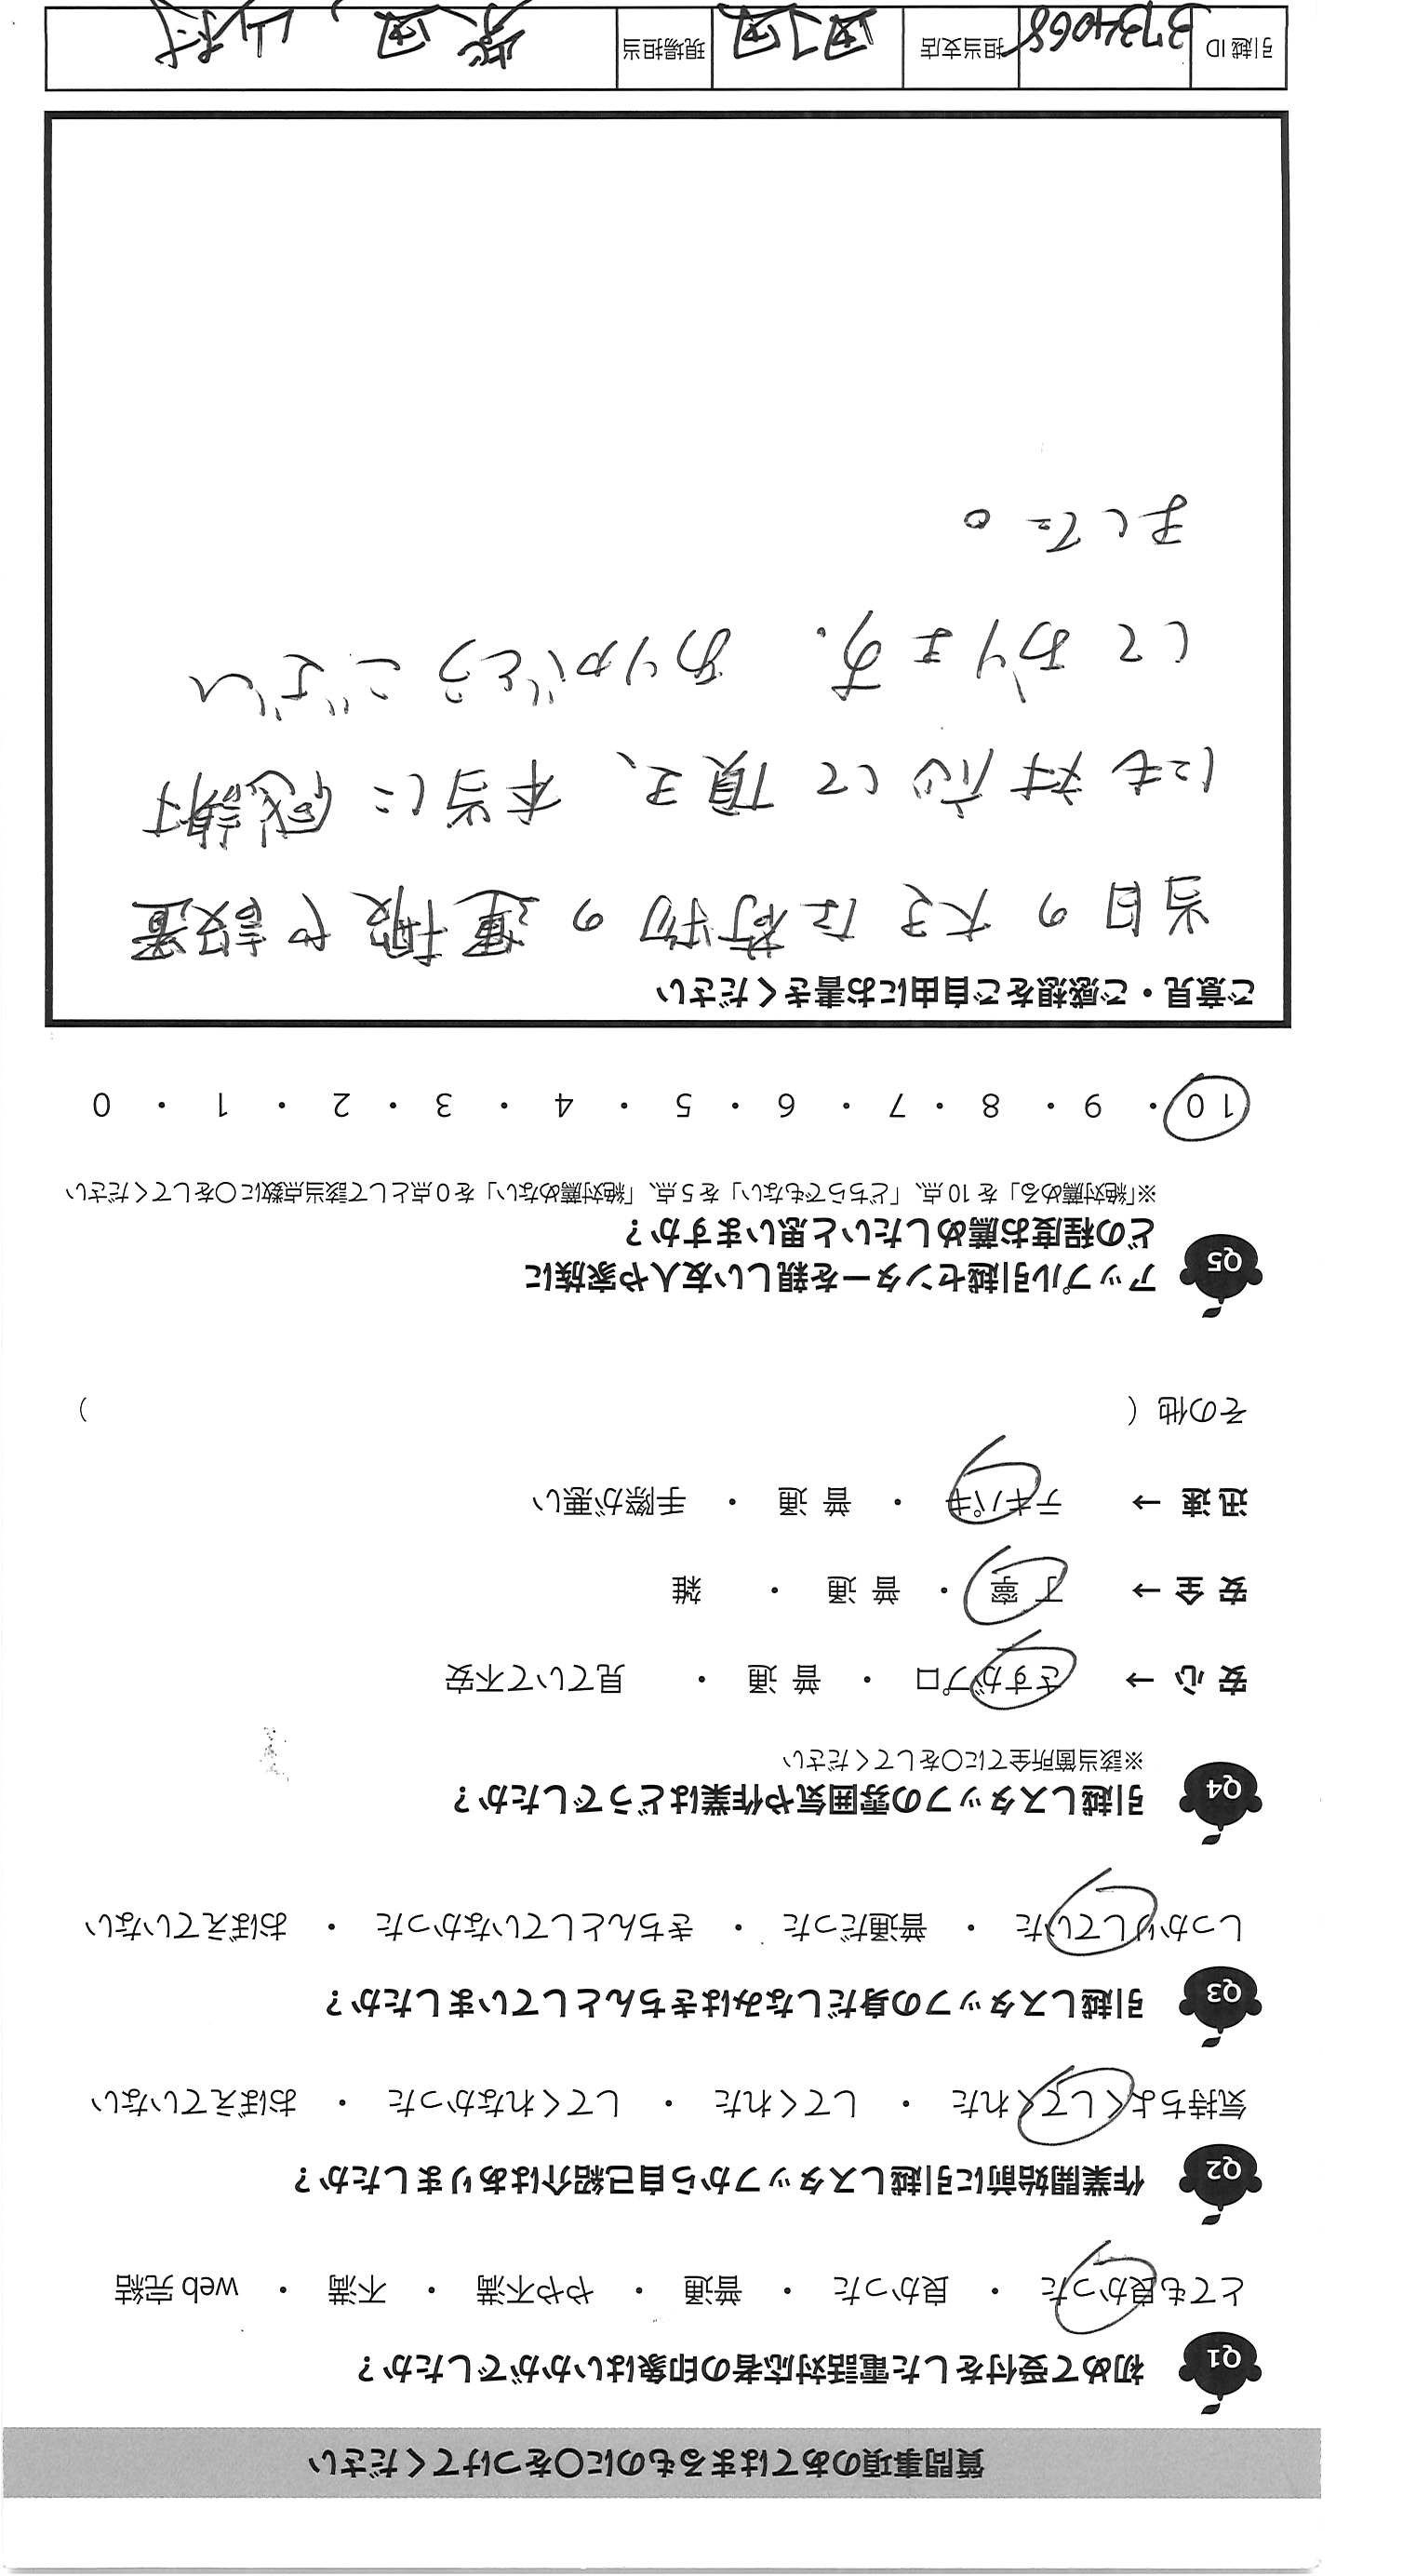 質問事項のあてはまるものに〇をつけてください
Q1 初めて受付をした電話対応者の印象はいかがでしたか？
とても良かった ・ 良かった ・ 普通 ・ やや不満 ・ 不満 ・ web 完結
Q2 作業開始前に引越しスタッフから自己紹介はありましたか？
気持ちよくしてくれた ・ してくれた ・ してくれなかった ・ おぼえていない
Q3 引越しスタッフの身だしなみはきちんとしていましたか？
しっかりしていた ・ 普通だった ・ きちんとしていなかった ・ おぼえていない
Q4 引越しスタッフの雰囲気や作業はどうでしたか？
※該当箇所全てに〇をしてください
安 心 → さすがプロ ・ 普 通 ・ 見ていて不安
安 全 → 丁 寧 ・ 普 通 ・ 雑
迅 速 → テキパキ ・ 普 通 ・ 手際が悪い
その他（ ）
Q5 アップル引越センターを親しい友人や家族に
どの程度お薦めしたいと思いますか？
※「絶対薦める」を 10 点、「どちらでもない」を 5 点、「絶対薦めない」を 0 点として該当点数に〇をしてください
10 ・ 9 ・ 8 ・ 7 ・ 6 ・ 5 ・ 4 ・ 3 ・ 2 ・ 1 ・ 0
ご意見・ご感想をご自由にお書きください
当日の大きな荷物の運搬や設置
にも対応して頂き、本当に感謝
しております。ありがとうござい
ました。
引越 ID 3734068 担当支店 現場担当